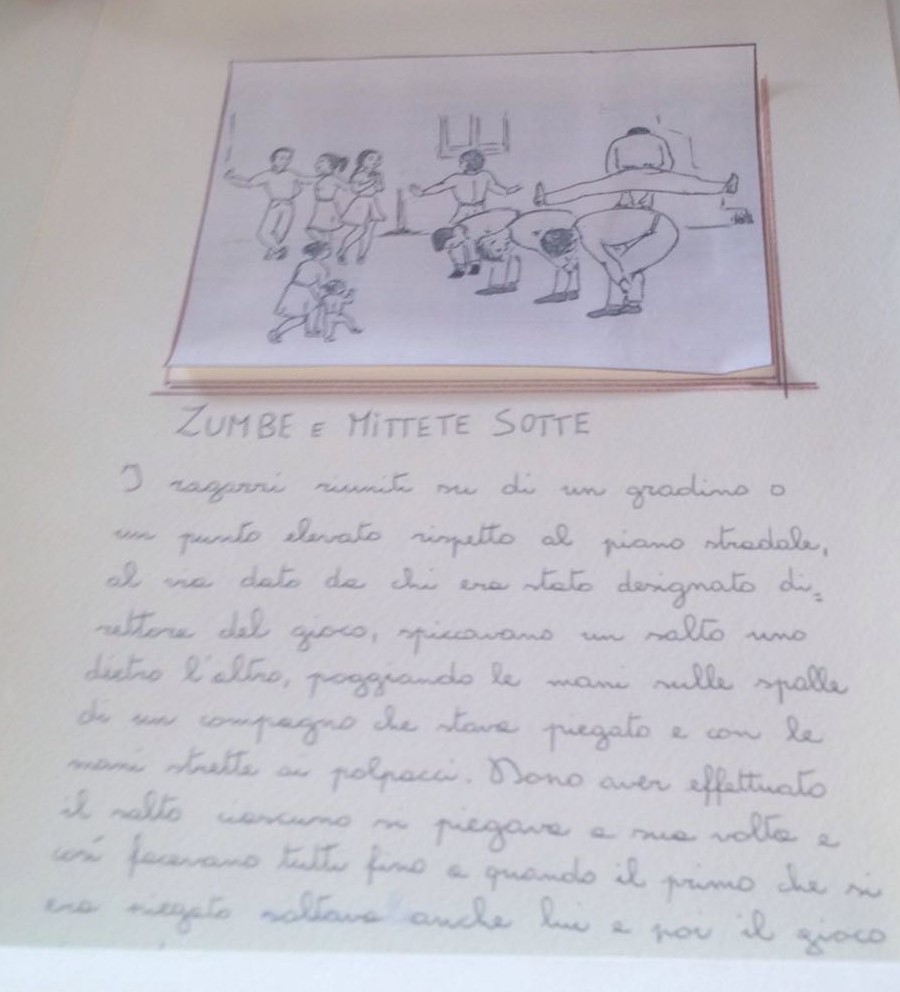 ZUMBE E MITTETE SOTTE
I ragazzi riuniti su di un gradino o
un punto elevato rispetto al piano stradale,
al via dato da chi era stato designato di=
rettore del gioco, spiccavano un salto uno
dietro l'altro, poggiando le mani sulle spalle
di un compagno che stava piegato e con le
mani strette ai polpacci. Dopo aver effettuato
il salto ciascuno si piegava a sua volta e
così facevano tutti fino a quando il primo che si
era piegato saltava anche lui e poi il gioco